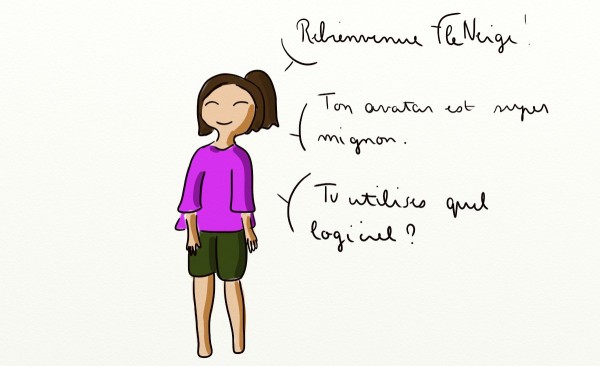 Rebienvenue FleNeige !
Ton avatar est super
mignon.
Tu utilises quel
logiciel ?